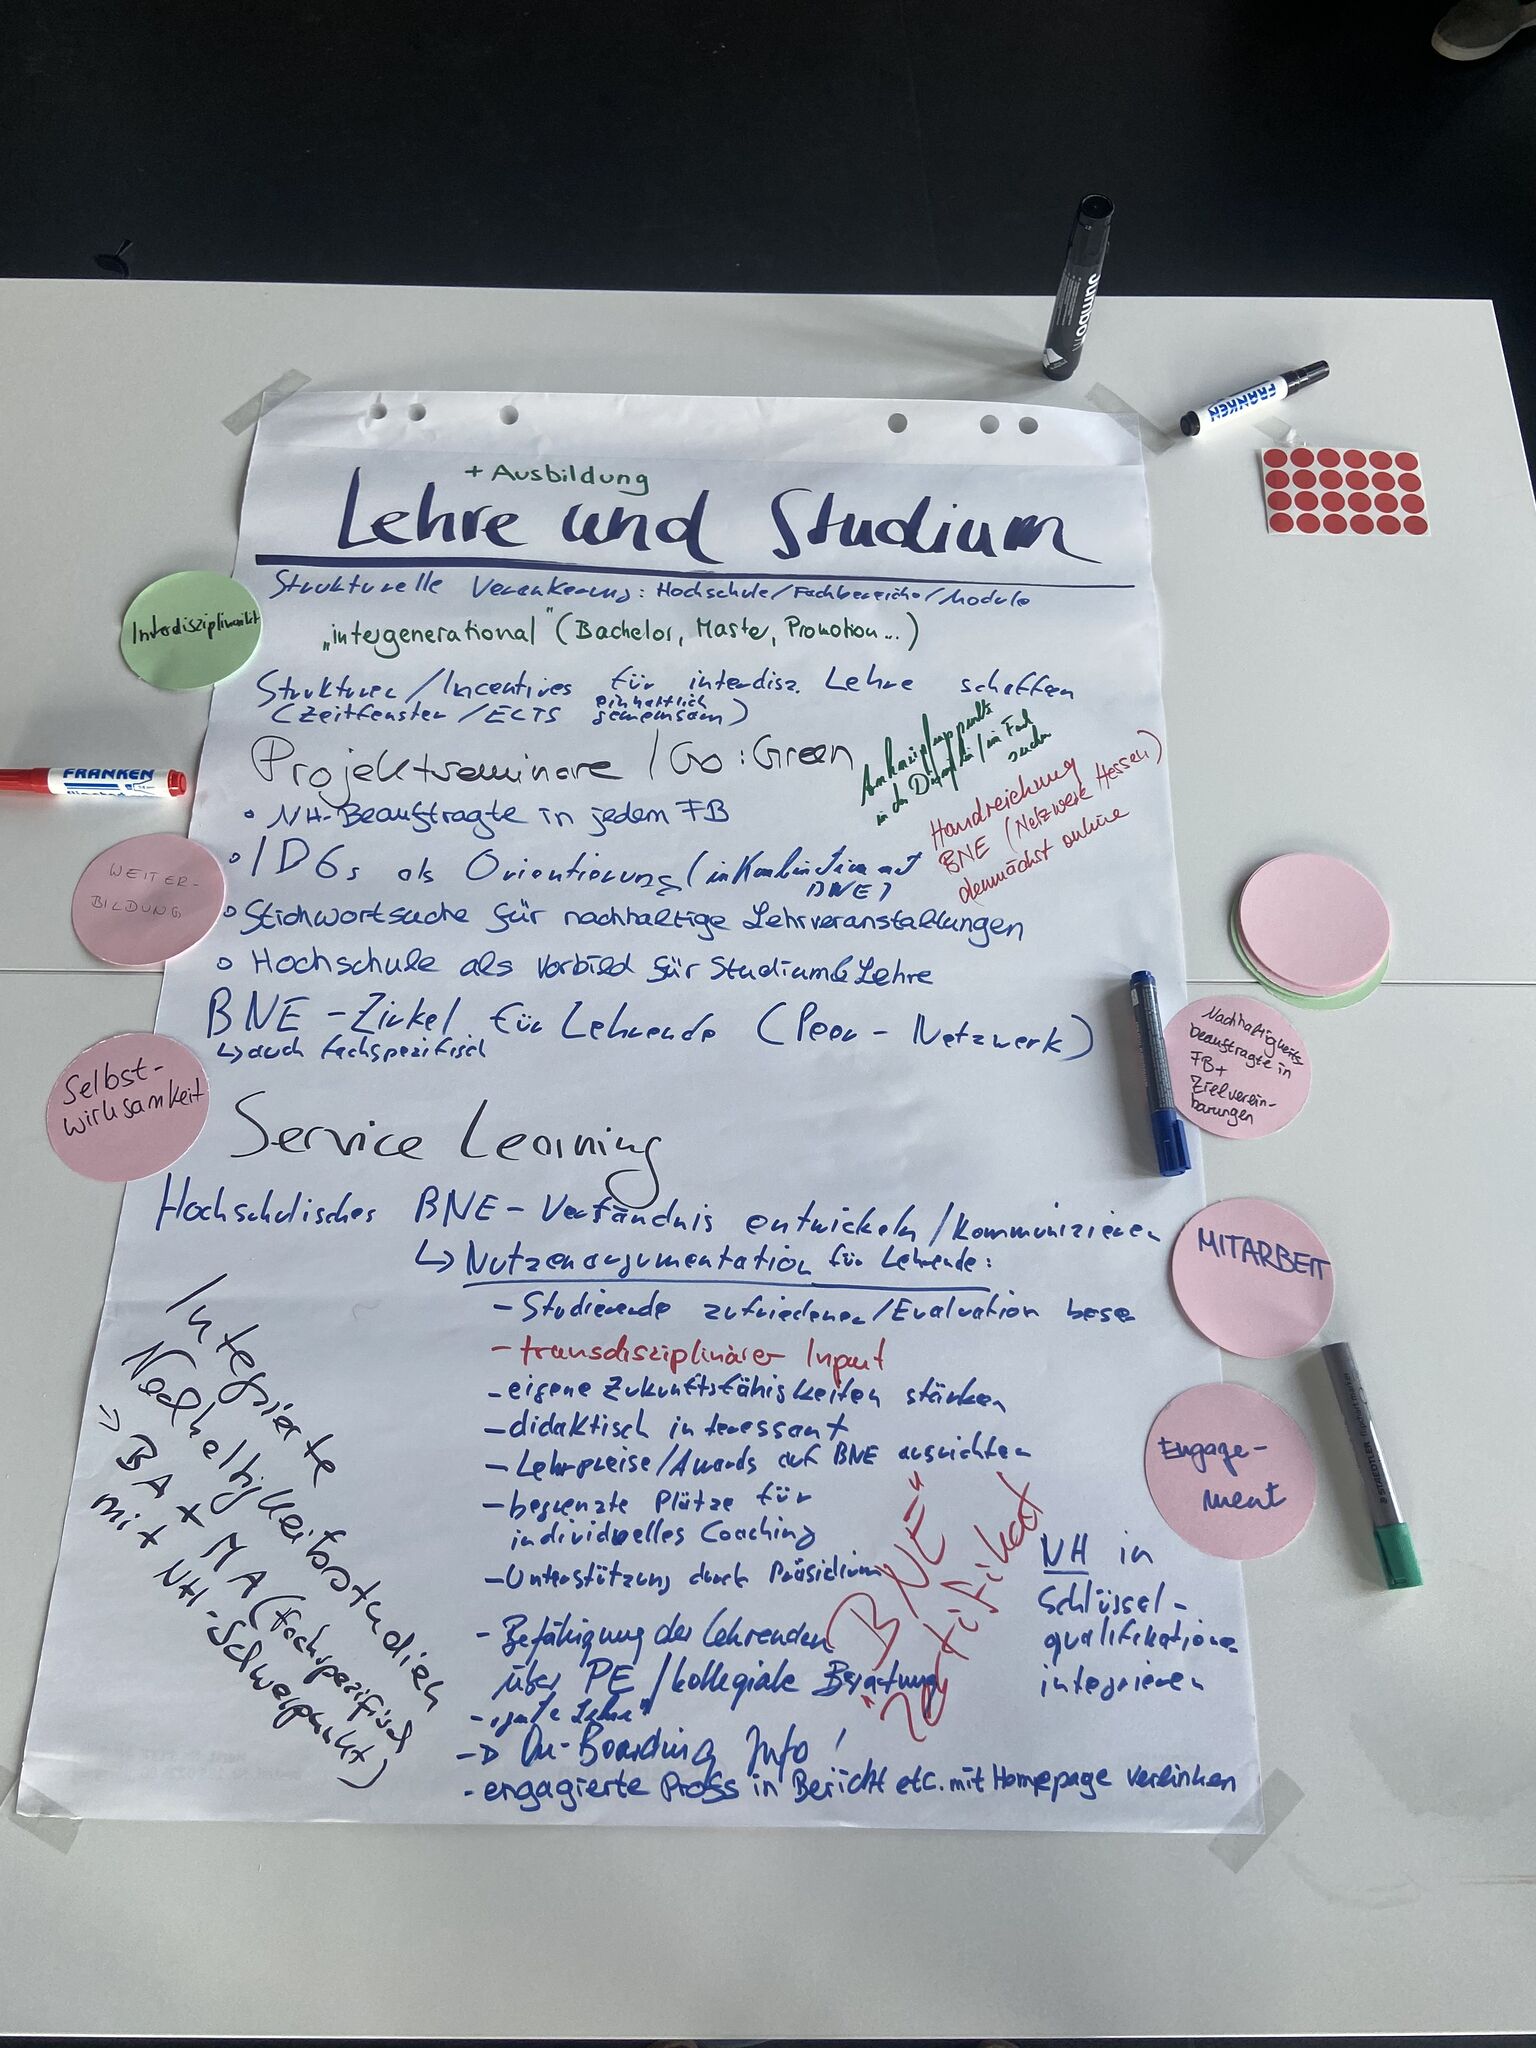 + Ausbildung
Lehre und Studium
Strukturelle Verankerung: Hochschule/Fachbereiche/Module
„intergenerational" (Bachelor, Master, Promotion...)
Strukturen/Incentives für interdisz. Lehre schaffen
(Zeitfenster/ECTS einheitlich gemeinsam)
Projektseminare / Go:Green
Anknüpfungspunkte
in der Disziplin/im Fach
suchen
Handreichung
BNE (Netzwerk Hessen)
demnächst online
• NH-Beauftragte in jedem FB
• IDGs als Orientierung (in Kombination mit
BNE)
• Stichwortsuche für nachhaltige Lehrveranstaltungen
• Hochschule als Vorbild für Studium & Lehre
BNE-Zirkel für Lehrende (Peer-Netzwerk)
↳ auch fachspezifisch
Service Learning
Hochschulisches BNE-Verständnis entwickeln/kommunizieren
↳ Nutzenargumentation für Lehrende:
- Studierende zufriedener/Evaluation besser
- transdisziplinärer Input
- eigene Zukunftsfähigkeiten stärken
- didaktisch interessant
- Lehrpreise/Awards auf BNE ausrichten
- begrenzte Plätze für
individuelles Coaching
- Unterstützung durch Präsidium
- Befähigung der Lehrenden
über PE/kollegiale Beratung
- „gute Lehre"
-> On-Boarding Info!
- engagierte Profs in Bericht etc. mit Homepage verlinken
"BNE"
"Zertifikat
NH in
Schlüssel-
qualifikationen
integrieren
Integrierte
Nachhaltigkeitsstudien
→ BA + MA (fachspezifisch
mit NH-Schwerpunkt)
Interdisziplinarität
WEITER-
BILDUNG
Selbst-
wirksamkeit
Nachhaltigkeits
beauftragte in
FB+
Zielverein-
barungen
MITARBEIT
Engage-
ment
FRANKEN
FRANKEN
STAEDTLER